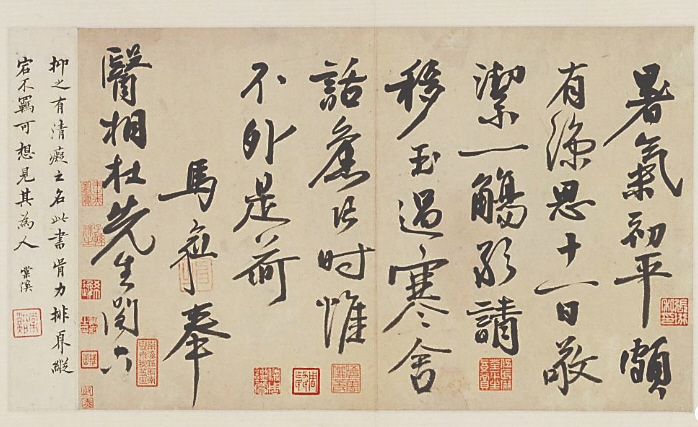 暑氣初平頗
有涼思十一日敬
潔一觴請
移玉過寒舍
話舊片時惟
不外是荷
馬愈奉
醫相杜先生閣下
抑之有清癡之名此書骨力排奡縱
宕不羈可想見其為人 棠溪